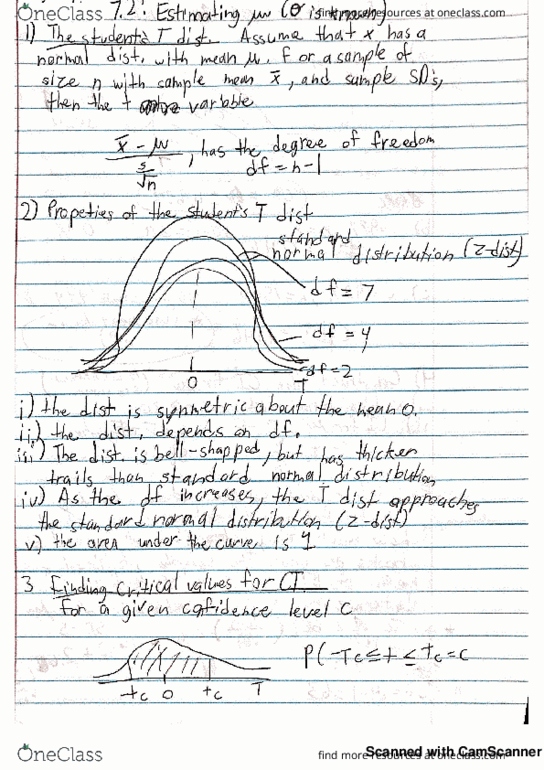 OneClass
7.2: Estimating μ (σ is known)
find more resources at oneclass.com
1) The student's T dist. Assume that x has a
normal dist, with mean μ. For a sample of
size n with sample mean x̄, and sample SD s,
then the t variable
x̄ - μ
s
√n
, has the degree of freedom
df = n-1
2) Propeties of the student's T dist
standard
normal distribution (z-dist)
df = 7
df = 4
df = 2
0
T
i) the dist is symmetric about the mean 0.
ii) the dist, depends on df.
iii) The dist. is bell-shapped, but has thicker
trails than standard normal distribution
iv) As the df increases, the T dist approaches
the standard normal distribution (z-dist)
v) the area under the curve is 1
3 Finding critical values for CI
for a given cofidence level c
-tc 0 tc T
P(-Tc ≤ t ≤ tc = c
OneClass
find more resources at oneclass.com
Scanned with CamScanner